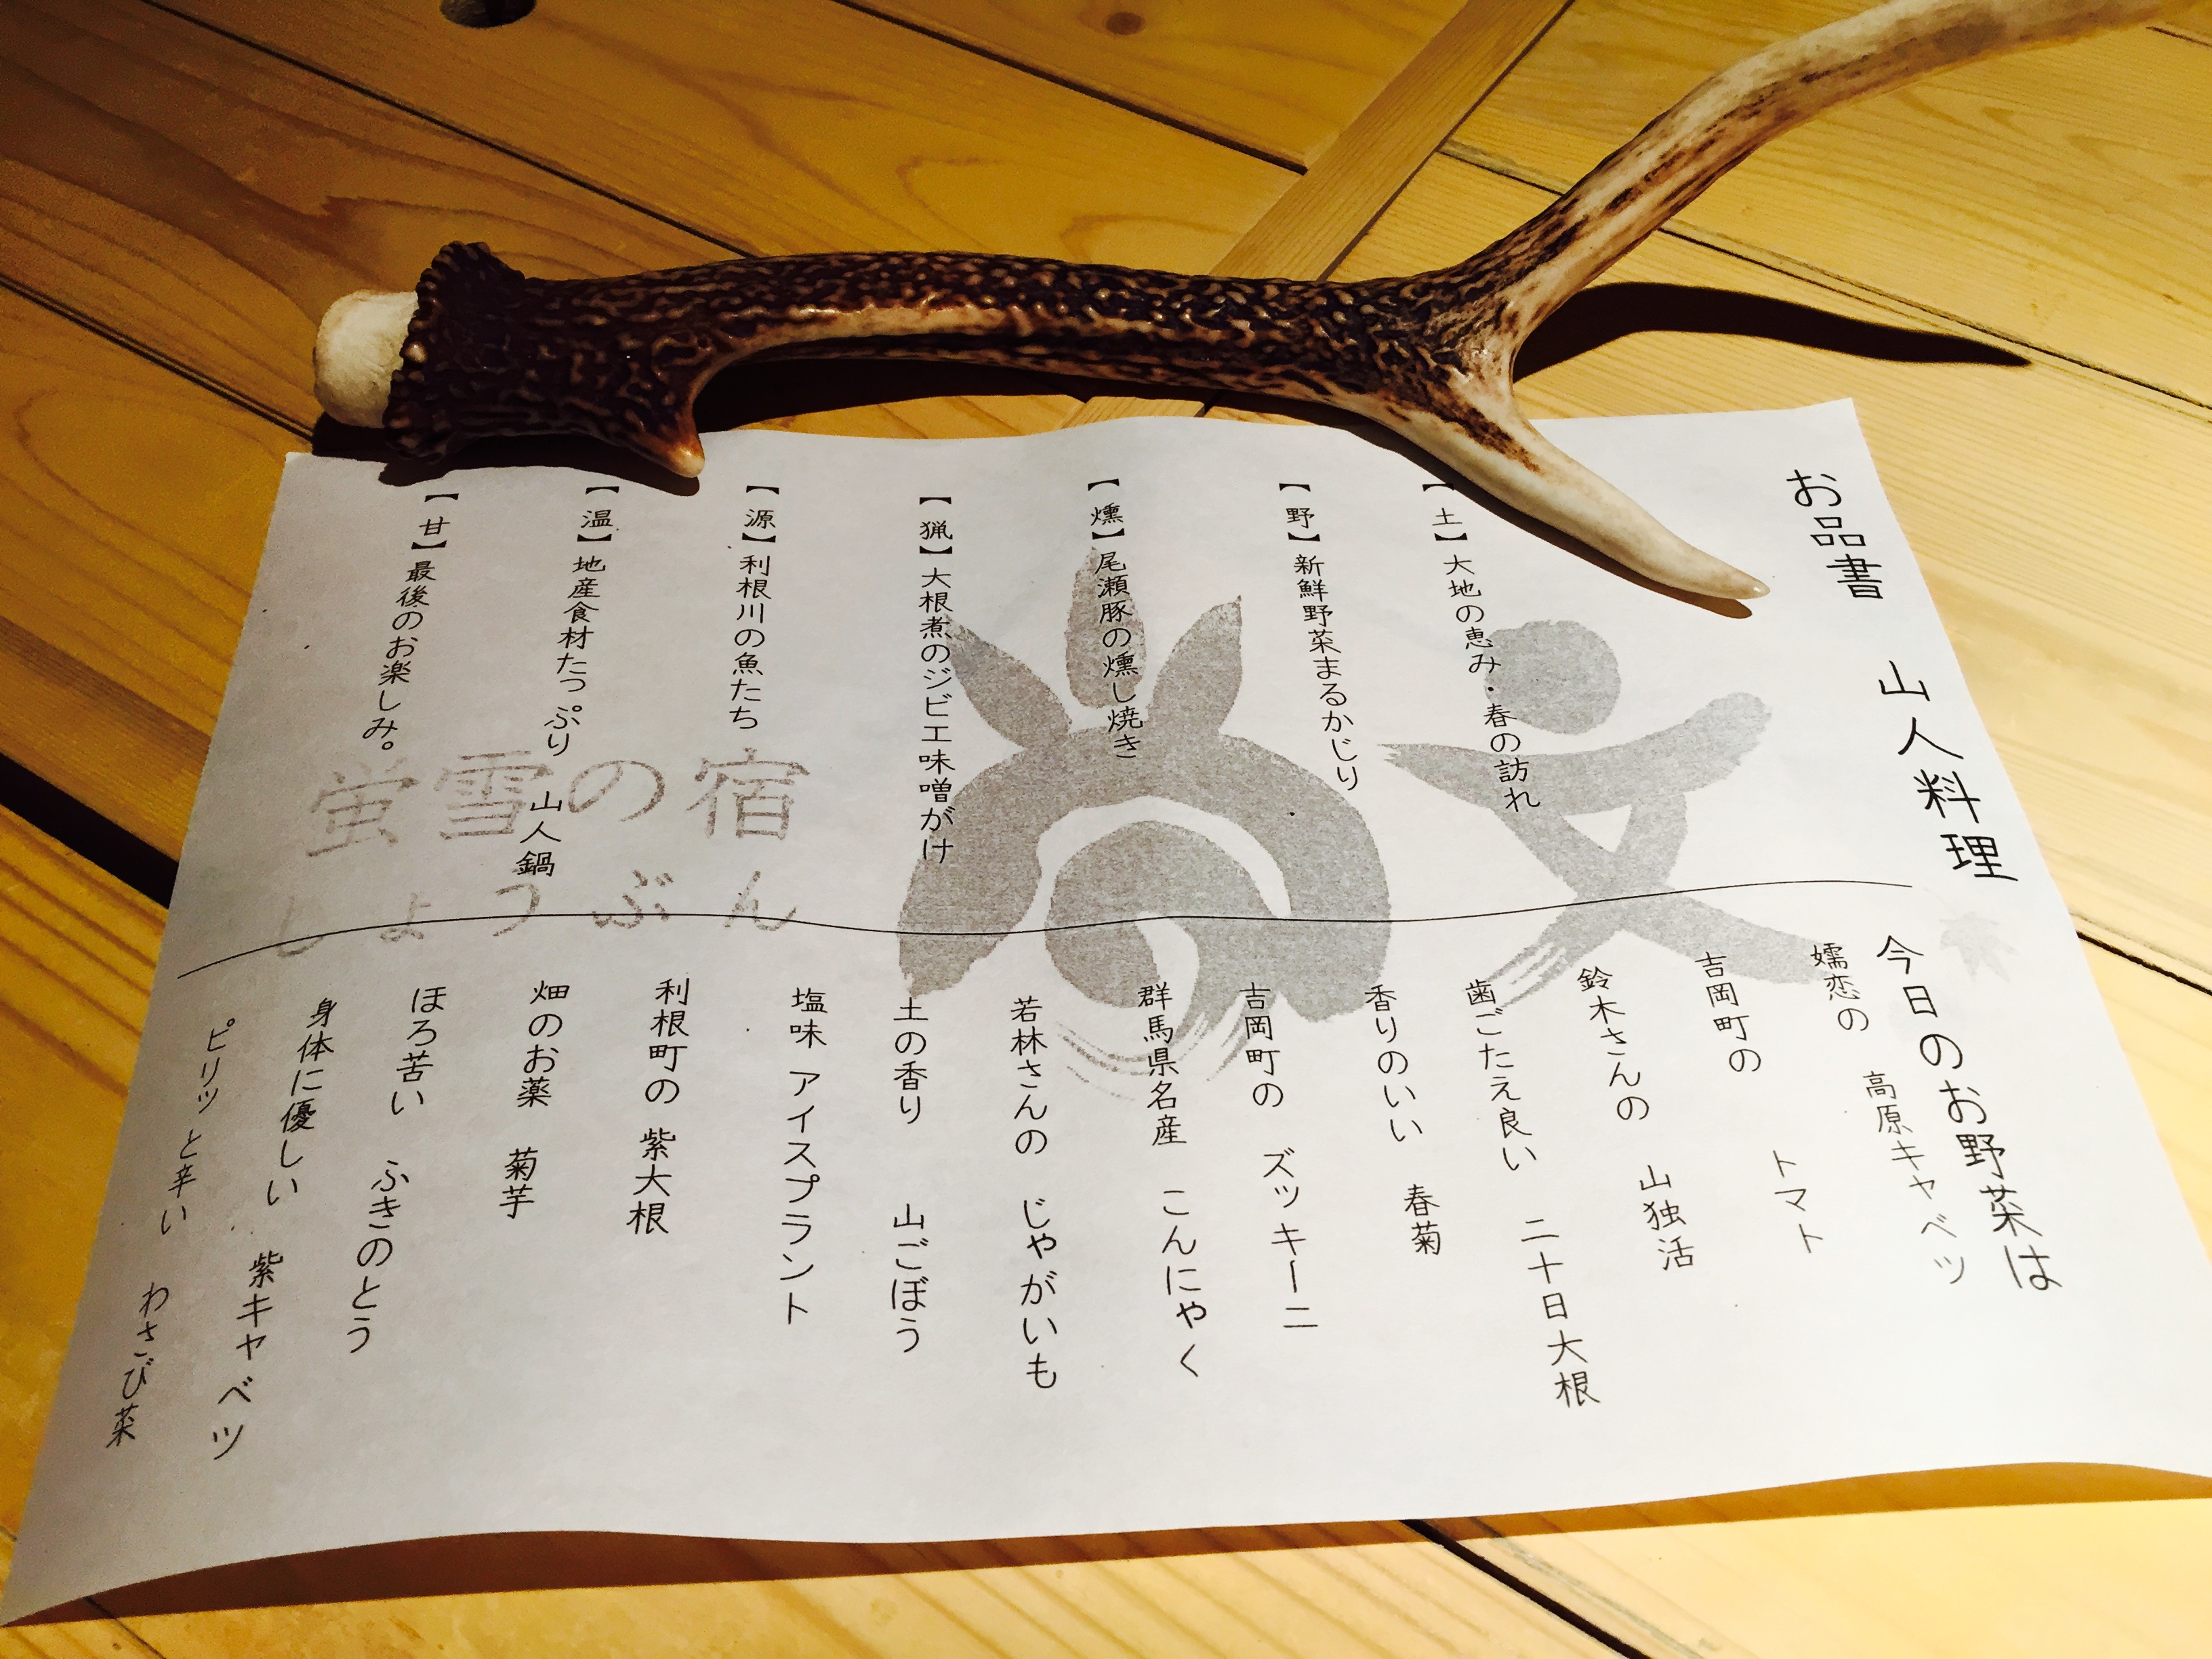 お品書　山人料理
【土】大地の恵み・春の訪れ
【野】新鮮野菜まるかじり
【燻】尾瀬豚の燻し焼き
【猟】大根煮のジビエ味噌がけ
【源】利根川の魚たち
【温】地産食材たっぷり　山人鍋
【甘】最後のお楽しみ。
今日のお野菜は
嬬恋の　高原キャベツ
吉岡町の　トマト
鈴木さんの　山独活
歯ごたえ良い　二十日大根
香りのいい　春菊
吉岡町の　ズッキーニ
群馬県名産　こんにゃく
若林さんの　じゃがいも
土の香り　山ごぼう
塩味　アイスプラント
利根町の　紫大根
畑のお薬　菊芋
ほろ苦い　ふきのとう
身体に優しい　紫キャベツ
ピリッと辛い　わさび菜
蛍雪の宿
しょうぶん
尚文